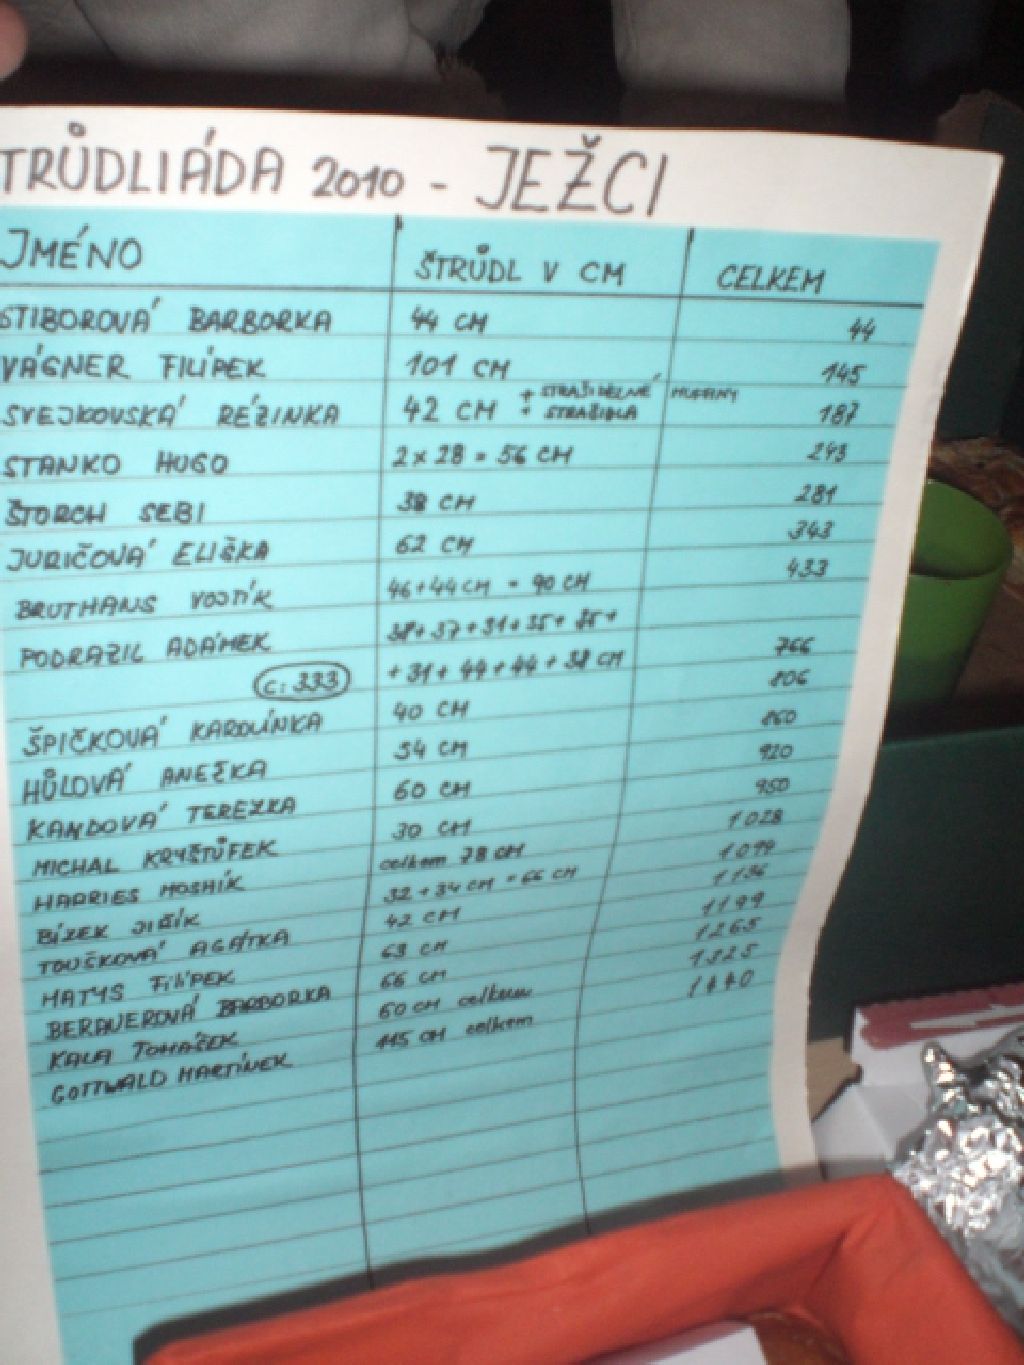 TRŮDLIÁDA 2010 - JEŽCI
JMÉNO ŠTRŮDL V CM CELKEM
STIBOROVÁ BARBORKA 44 CM 44
VÁGNER FILÍPEK 101 CM 145
SVEJKOVSKÁ RÉZINKA 42 CM + STRAŠIDELNÉ MUFFINY + STRAŠIDLA 187
STANKO HUGO 2x28 = 56 CM 243
ŠTORCH SEBI 38 CM 281
JURIČOVÁ ELIŠKA 62 CM 343
BRUTHANS VOJTÍK 46+44 CM = 90 CM 433
PODRAZIL ADÁMEK 38+37+31+35+35+
C: 333 +31+44+44+38 CM 766
ŠPIČKOVÁ KAROLÍNKA 40 CM 806
HŮLOVÁ ANEŽKA 54 CM 860
KANDOVÁ TEREZKA 60 CM 920
MICHAL KRYŠTŮFEK 30 CM 950
HARRIES MOSHÍK celkem 78 CM 1028
BÍZEK JIŘÍK 32+34 CM = 66 CM 1094
TOUČKOVÁ AGÁTKA 42 CM 1136
MATYS FILÍPEK 63 CM 1199
BERAUEROVÁ BARBORKA 66 CM 1265
KALA TOMÁŠEK 60 CM celkem 1325
GOTTWALD MARTÍNEK 115 CM celkem 1440